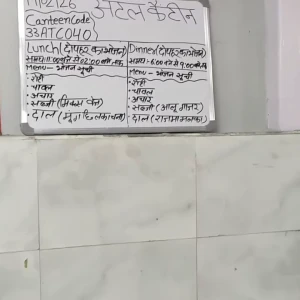 11/02/26 अटल कैंटीन
Canteen Code)
33ATC040)
Lunch(दोपहर का भोजन)
समय: 11:00 बजे से 02:00 बजे तक
Menu - भोजन सूची
• रोटी
• चावल
• अचार
• सब्जी (मिक्स वेज)
• दाल (मूंग छिलका चना)
Dinner(दोपहर का भोजन)
समय: 6:00 बजे से 9:00 बजे तक
Menu - भोजन सूची
• रोटी
• चावल
• अचार
• सब्जी (आलू गाजर)
• दाल (राजमा मलका)